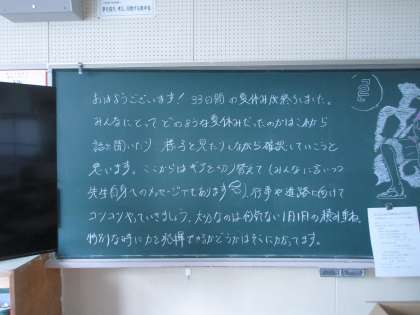 おはようございます！ 33日間の夏休みが終了しました。
みんなにとってどのような夏休みだったのかはこれから
話を聞いたり、様子を見たりしながら確認していこうと
思います。ここからはギアを切り替えて（みんなに言いつつ
先生自身へのメッセージでもあります）、行事や進路に向けて
コツコツやっていきましょう。大切なのは何気ない1日1日の積み重ね。
特別な時に力を発揮できるかどうかはそこにかかってます。